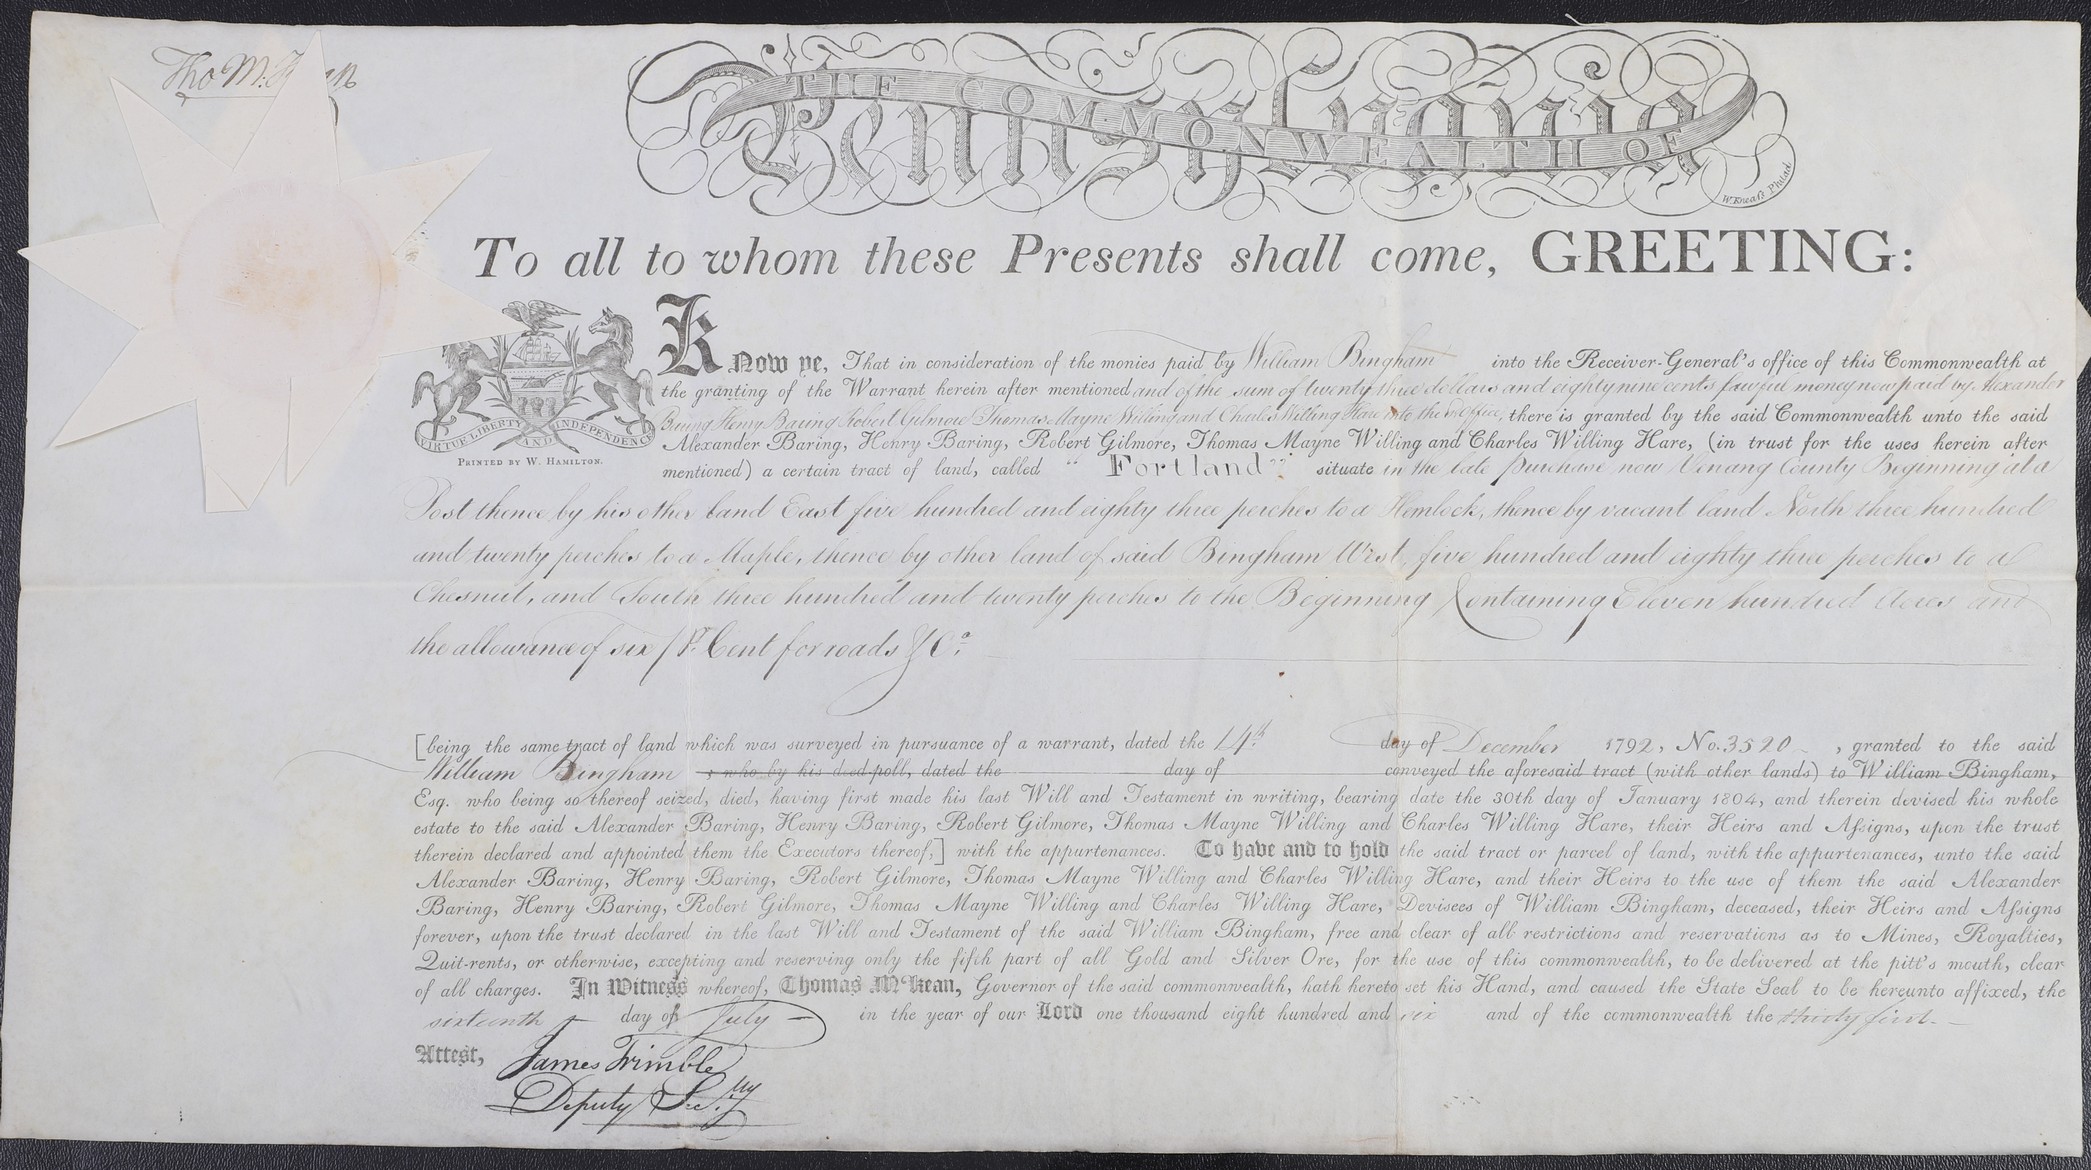 Tho M:
THE COMMONWEALTH OF
Pennsylvania
W. Kneass Philad.
To all to whom these Presents shall come, GREETING:
Know ye, That in consideration of the monies paid by William Bingham into the Receiver-General's office of this Commonwealth at
the granting of the Warrant herein after mentioned and of the sum of twenty three dollars and eighty nine cents lawful money now paid by Alexander
Baring Henry Baring Robert Gilmore Thomas Mayne Willing and Charles Willing Hare into the sd Office, there is granted by the said Commonwealth unto the said
Alexander Baring, Henry Baring, Robert Gilmore, Thomas Mayne Willing and Charles Willing Hare, (in trust for the uses herein after
mentioned) a certain tract of land, called "Fortland" situate in the late purchase now Venang County Beginning at a
VIRTUE LIBERTY AND INDEPENDENCE
PRINTED BY W. HAMILTON.
Post thence by his other land East five hundred and eighty three perches to a Hemlock, thence by vacant land North three hundred
and twenty perches to a Maple, thence by other land of said Bingham West, five hundred and eighty three perches to a
Chesnut, and South three hundred and twenty perches to the Beginning Containing Eleven hundred Acres and
the allowance of six pr. Cent for roads &Ca.
[being the same tract of land which was surveyed in pursuance of a warrant, dated the 14th day of December 1792, No. 3520, granted to the said
William Bingham , who by his deed poll, dated the day of conveyed the aforesaid tract (with other lands) to William Bingham,
Esq. who being so thereof seized, died, having first made his last Will and Testament in writing, bearing date the 30th day of January 1804, and therein devised his whole
estate to the said Alexander Baring, Henry Baring, Robert Gilmore, Thomas Mayne Willing and Charles Willing Hare, their Heirs and Aſsigns, upon the trust
therein declared and appointed them the Executors thereof,] with the appurtenances. To have and to hold the said tract or parcel of land, with the appurtenances, unto the said
Alexander Baring, Henry Baring, Robert Gilmore, Thomas Mayne Willing and Charles Willing Hare, and their Heirs to the use of them the said Alexander
Baring, Henry Baring, Robert Gilmore, Thomas Mayne Willing and Charles Willing Hare, Devisees of William Bingham, deceased, their Heirs and Aſsigns
forever, upon the trust declared in the last Will and Testament of the said William Bingham, free and clear of all restrictions and reservations as to Mines, Royalties,
Quit-rents, or otherwise, excepting and reserving only the fifth part of all Gold and Silver Ore, for the use of this commonwealth, to be delivered at the pitt's mouth, clear
of all charges. In Witness whereof, Thomas M'Kean, Governor of the said commonwealth, hath hereto set his Hand, and caused the State Seal to be hereunto affixed, the
sixteenth day of July in the year of our Lord one thousand eight hundred and six and of the commonwealth the thirty first.
Attest, James Trimble
Deputy Sec.ry